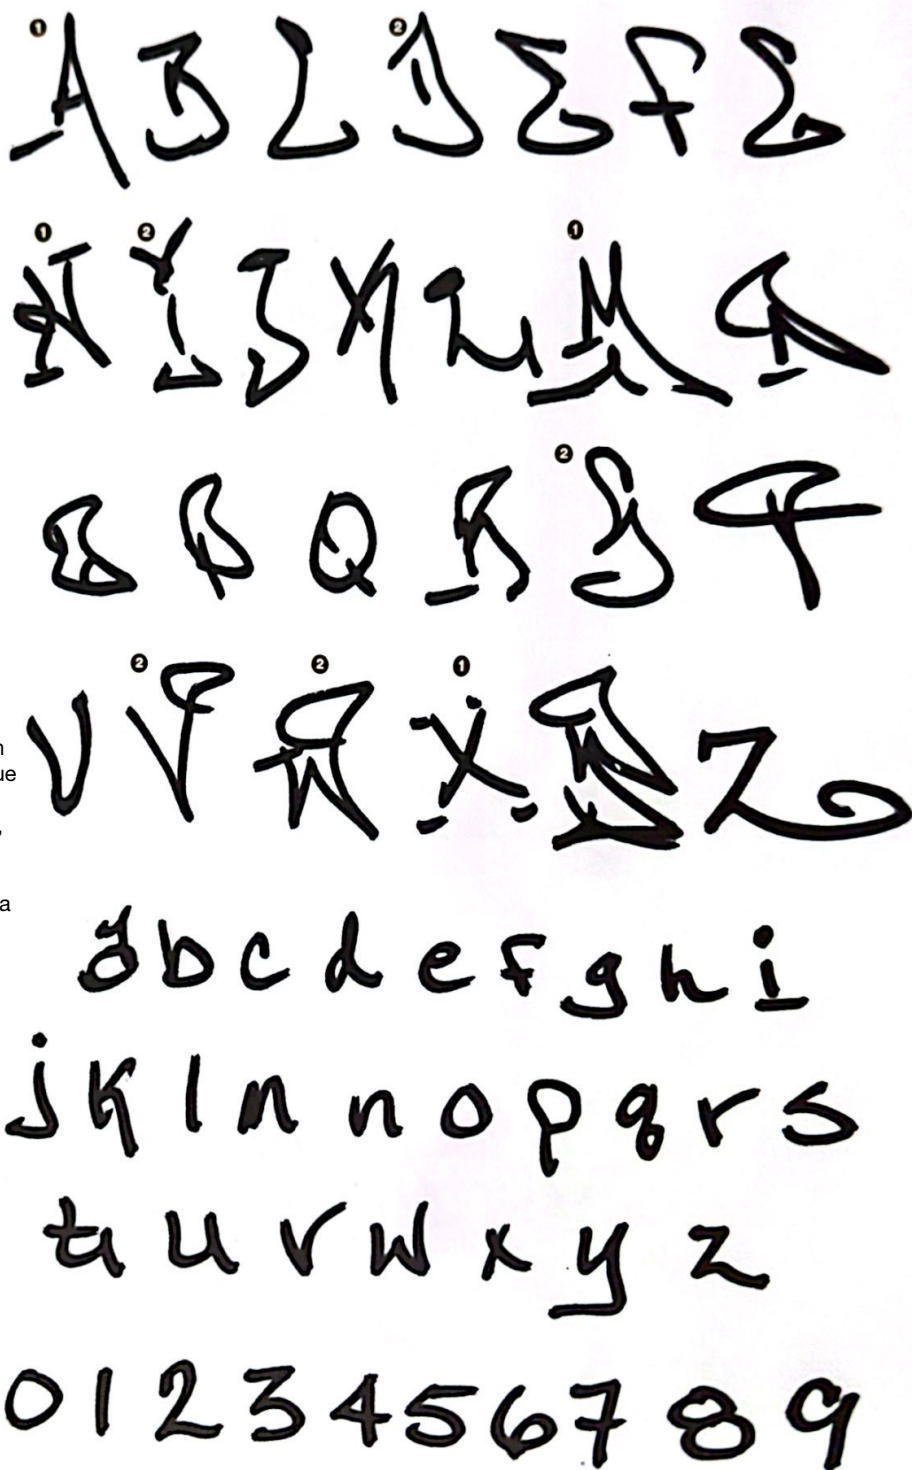 ❶ ❷
A B C D E F G
❶ ❷ ❶
H I J K L M N
❷
O P Q R S T
❷ ❷ ❶
U V W X Y Z
ue
a
a b c d e f g h i
j k l m n o p q r s
t u v w x y z
0 1 2 3 4 5 6 7 8 9